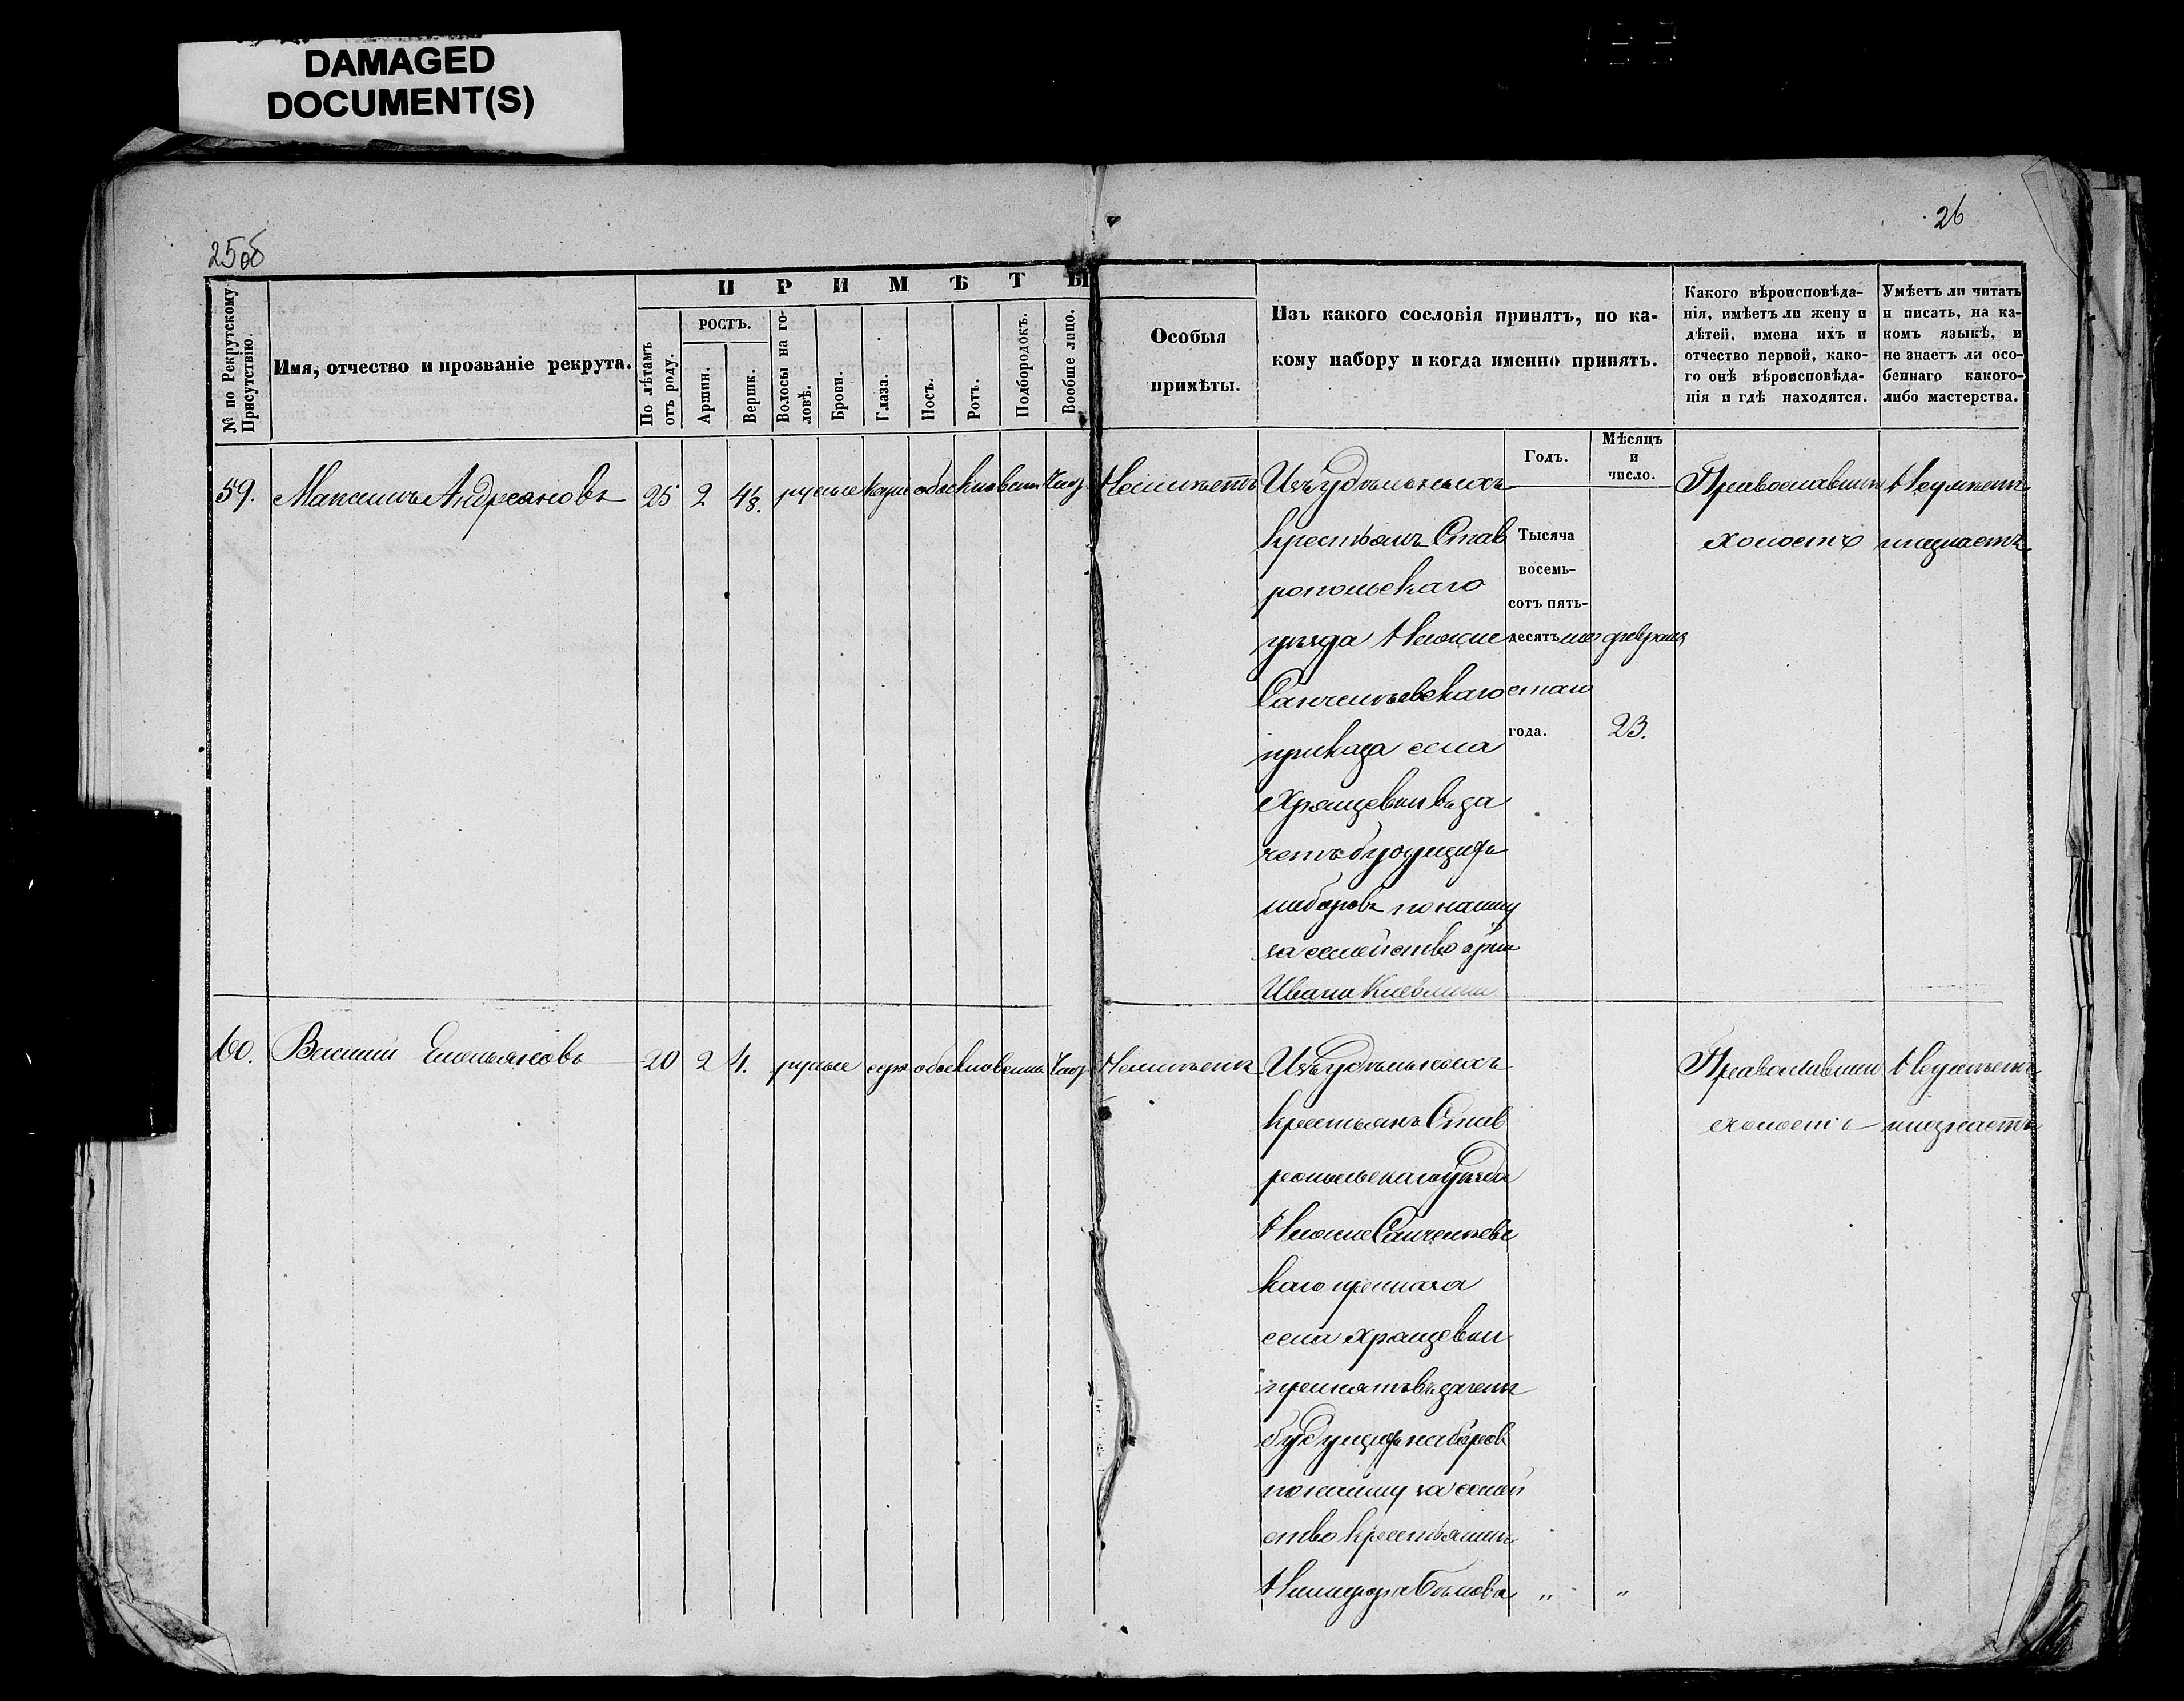 DAMAGED
DOCUMENT(S)
25об
26
№ по Рекрутскому Присутствію.
Имя, отчество и прозваніе рекрута.
ПРИМѢТЫ
По лѣтамъ отъ роду.
РОСТЪ.
Аршин.
Вершк.
Волосы на головѣ.
Брови.
Глаза.
Носъ.
Ротъ.
Подбородокъ.
Вообще лицо.
Особыя
примѣты.
Изъ какого сословія принятъ, по ка-
кому набору и когда именно принятъ.
Какого вѣроисповѣда-
нія, имѣетъ ли жену и
дѣтей, имена ихъ и
отчество первой, како-
го онѣ вѣроисповѣда-
нія и гдѣ находятся.
Умѣетъ ли читать
и писать, на ка-
комъ языкѣ, и
не знаетъ ли осо-
беннаго какого-
либо мастерства.
Годъ.
Мѣсяцъ
и
число.
59. Максимъ Андреяновъ 25 2 русые карие обыкновенн Чист Неимѣетъ
Изъ удѣльныхъ
крестьянъ Став
ропольскаго
уѣзда Нижне
Санчелѣевскаго
приказа села
Хрящевки въ за
четъ будущихъ
наборовъ по найму
за семейство
Ивана
Тысяча
восемь-
сотъ пять-
десятъ шес
стаго
года.
февраля
23.
Православный
холостъ
Неумѣетъ
и незнаетъ
60. Василий Емельяновъ 20 2 4. русые серые обыкновенн Чист Неимѣетъ
Изъ удѣльныхъ
крестьянъ Став
ропольскаго уѣзда
Нижне Санчелѣевс
каго приказа
села Хрящевки
принятъ въ зачетъ
будущихъ наборовъ
по найму за семей
ство крестьянин
Никифора Бѣлова " "
Православный
холостъ
Неумѣетъ
и незнаетъ